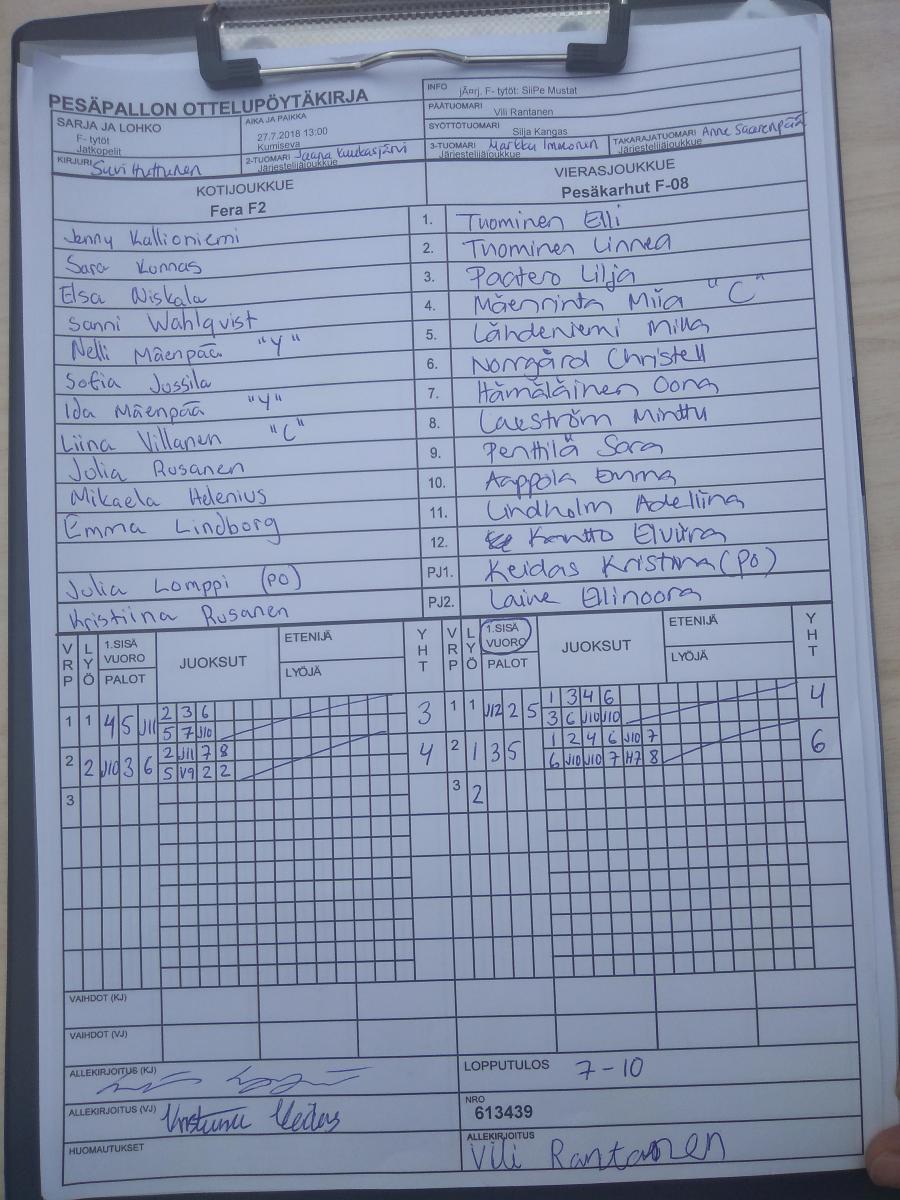 PESÄPALLON OTTELUPÖYTÄKIRJA
INFO jÃ¤rj. F- tytöt: SiiPe Mustat
PÄÄTUOMARI Vili Rantanen
SARJA JA LOHKO F- tytöt Jatkopelit
AIKA JA PAIKKA 27.7.2018 13:00 Kumiseva
SYÖTTÖTUOMARI Silja Kangas
KIRJURI Suvi Huttunen
2-TUOMARI Jaana Kuukasjärvi Järjestelijäjoukkue
3-TUOMARI Markku Immonen Järjestelijäjoukkue
TAKARAJATUOMARI Anne Saarenpää Järjestelijäjoukkue
KOTIJOUKKUE VIERASJOUKKUE
Fera F2 Pesäkarhut F-08
Jenny Kallioniemi 1. Tuominen Elli
Sara Kunnas 2. Tuominen Linnea
Elsa Niskala 3. Paatero Lilja
Sanni Wahlqvist 4. Mäenrinta Miia "C"
Nelli Mäenpää "Y" 5. Lähdeniemi Milla
Sofia Jussila 6. Norrgård Christell
Ida Mäenpää "Y" 7. Hämäläinen Oona
Liina Villanen "C" 8. Minttu
Julia Rusanen 9. Penttilä Sara
Mikaela Helenius 10. Aappola Emma
Emma Lindborg 11. Lindholm Adeliina
12. Kantto Elviira
Julia Lomppi (PO) PJ1. Keidas Kristiina (PO)
Kristiina Rusanen PJ2. Laine Ellinoora
VRP LYÖ 1.SISÄ VUORO PALOT JUOKSUT ETENIJÄ LYÖJÄ YHT VRP LYÖ 1.SISÄ VUORO PALOT JUOKSUT ETENIJÄ LYÖJÄ YHT
1 1 4 5 J11 2 3 6 3 1 1 J12 2 5 1 3 4 6 4
5 7 J10 3 6 J10 J10
2 2 J10 3 6 2 J11 7 8 4 2 1 3 5 1 2 4 6 J10 7 6
5 V9 2 2 6 J10 J10 7 H7 8
3 3 2
VAIHDOT (KJ)
VAIHDOT (VJ)
ALLEKIRJOITUS (KJ) LOPPUTULOS 7-10
ALLEKIRJOITUS (VJ) Kristiina Keidas NRO 613439
HUOMAUTUKSET ALLEKIRJOITUS Vili Rantanen